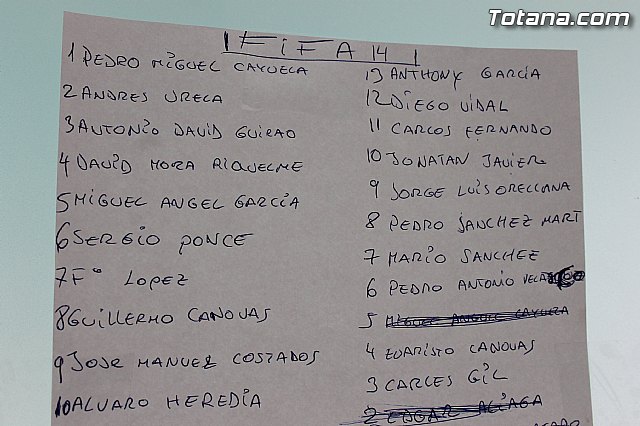 Totana.com
FIFA 14
1 PEDRO MIGUEL CAYUELA
2 ANDRES URECA
3 AUTONIO DAVID GUIRAO
4 DAVID MORA RIQUELME
5 MIGUEL ANGEL GARCÍA
6 SERGIO PONCE
7 Fº LOPEZ
8 GUILLERMO CANOVAS
9 JOSE MANUEL COSTADOS
10 ALVARO HEREDIA
13 ANTHONY GARCÍA
12 DIEGO VIDAL
11 CARLOS FERNANDO
10 JONATAN JAVIER
9 JORGE LUIS ORELLANA
8 PEDRO SANCHEZ MART
7 MARIO SANCHEZ
6 PEDRO ANTONIO
5 MIGUEL ANGEL CAYUELA
4 EVARISTO CANOVAS
3 CARLES GIL
2 EDGAR ALIAGA